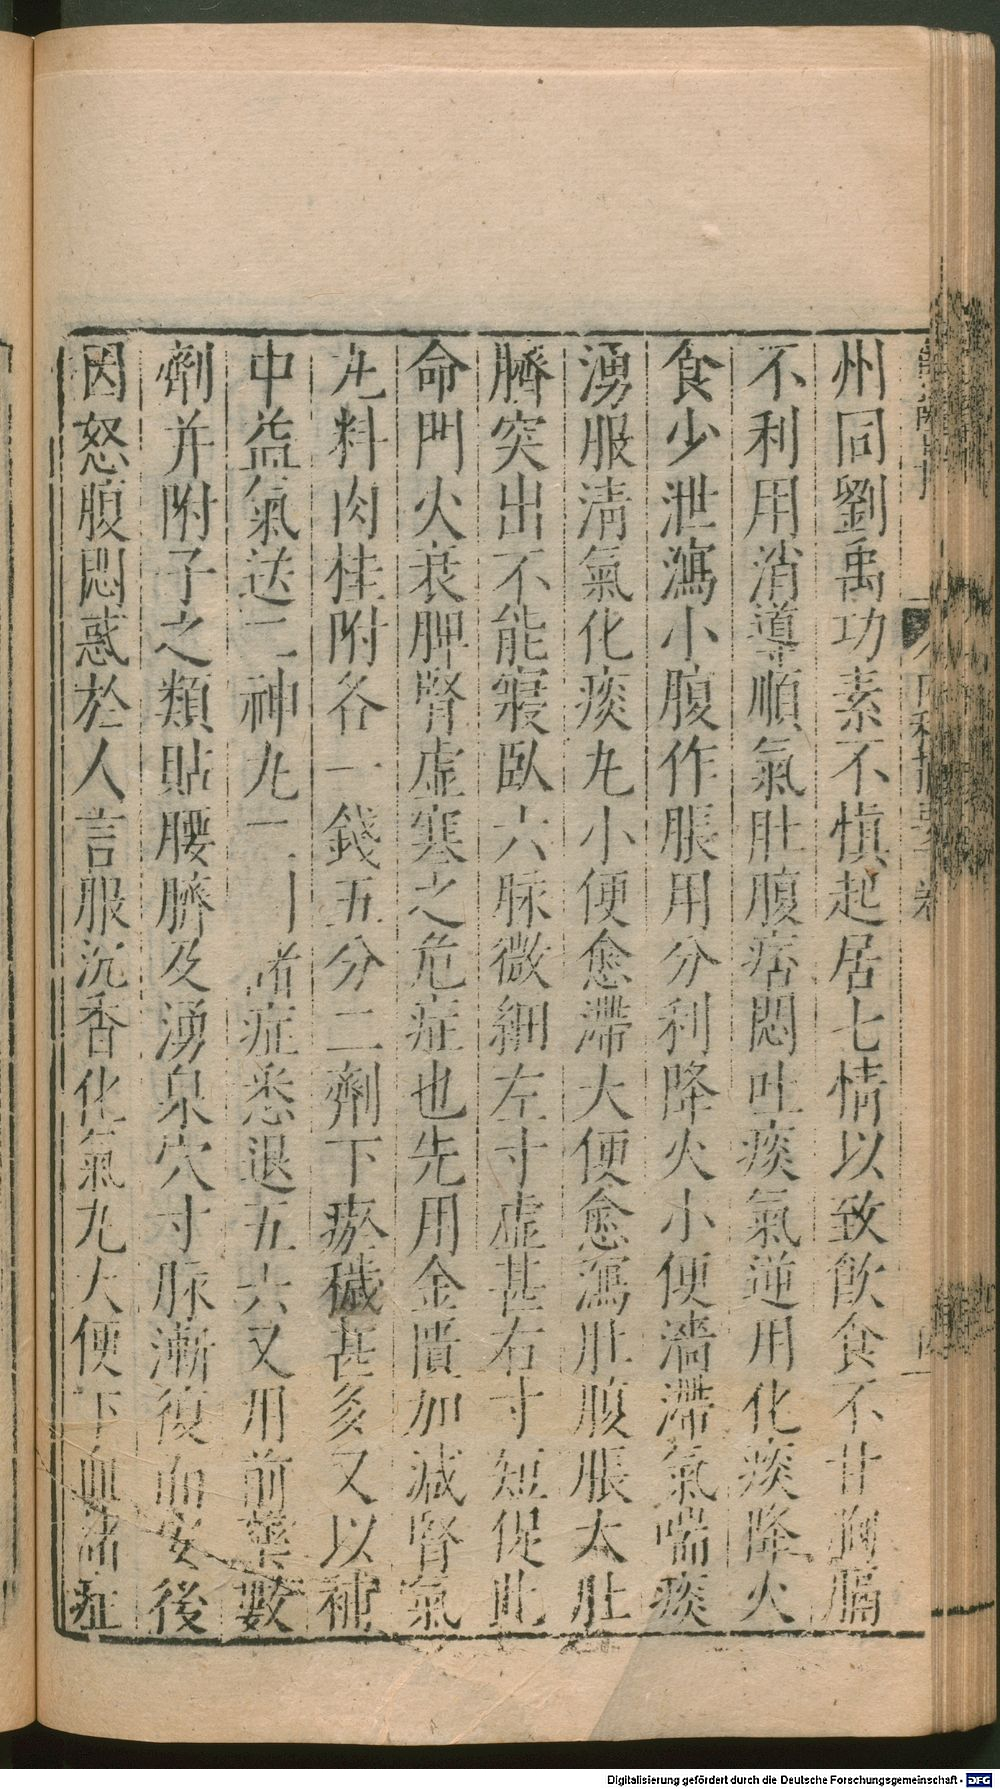 州同劉禹功素不慎起居七情以致飲食不甘胸膈
不利用消導順氣肚腹痞悶吐痰氣逆用化痰降火
食少泄瀉小腹作脹用分利降火小便濇滯氣喘痰
湧服淸氣化痰丸小便愈滯大便愈瀉肚腹脹大肚
臍突出不能寢臥六脉微細左寸虛甚右寸短促此
命門火衰脾腎虛寒之危症也先用金匱加減腎氣
丸料肉桂附各一錢五分二劑下瘀穢甚多又以補
中益氣送二神丸二劑諸症悉退五六又用前藥數
劑并附子之類貼腰臍及湧泉穴寸脉漸復而安後
因怒腹悶惑於人言服沉香化氣丸大便下血諸症
Digitalisierung gefördert durch die Deutsche Forschungsgemeinschaft - DFG